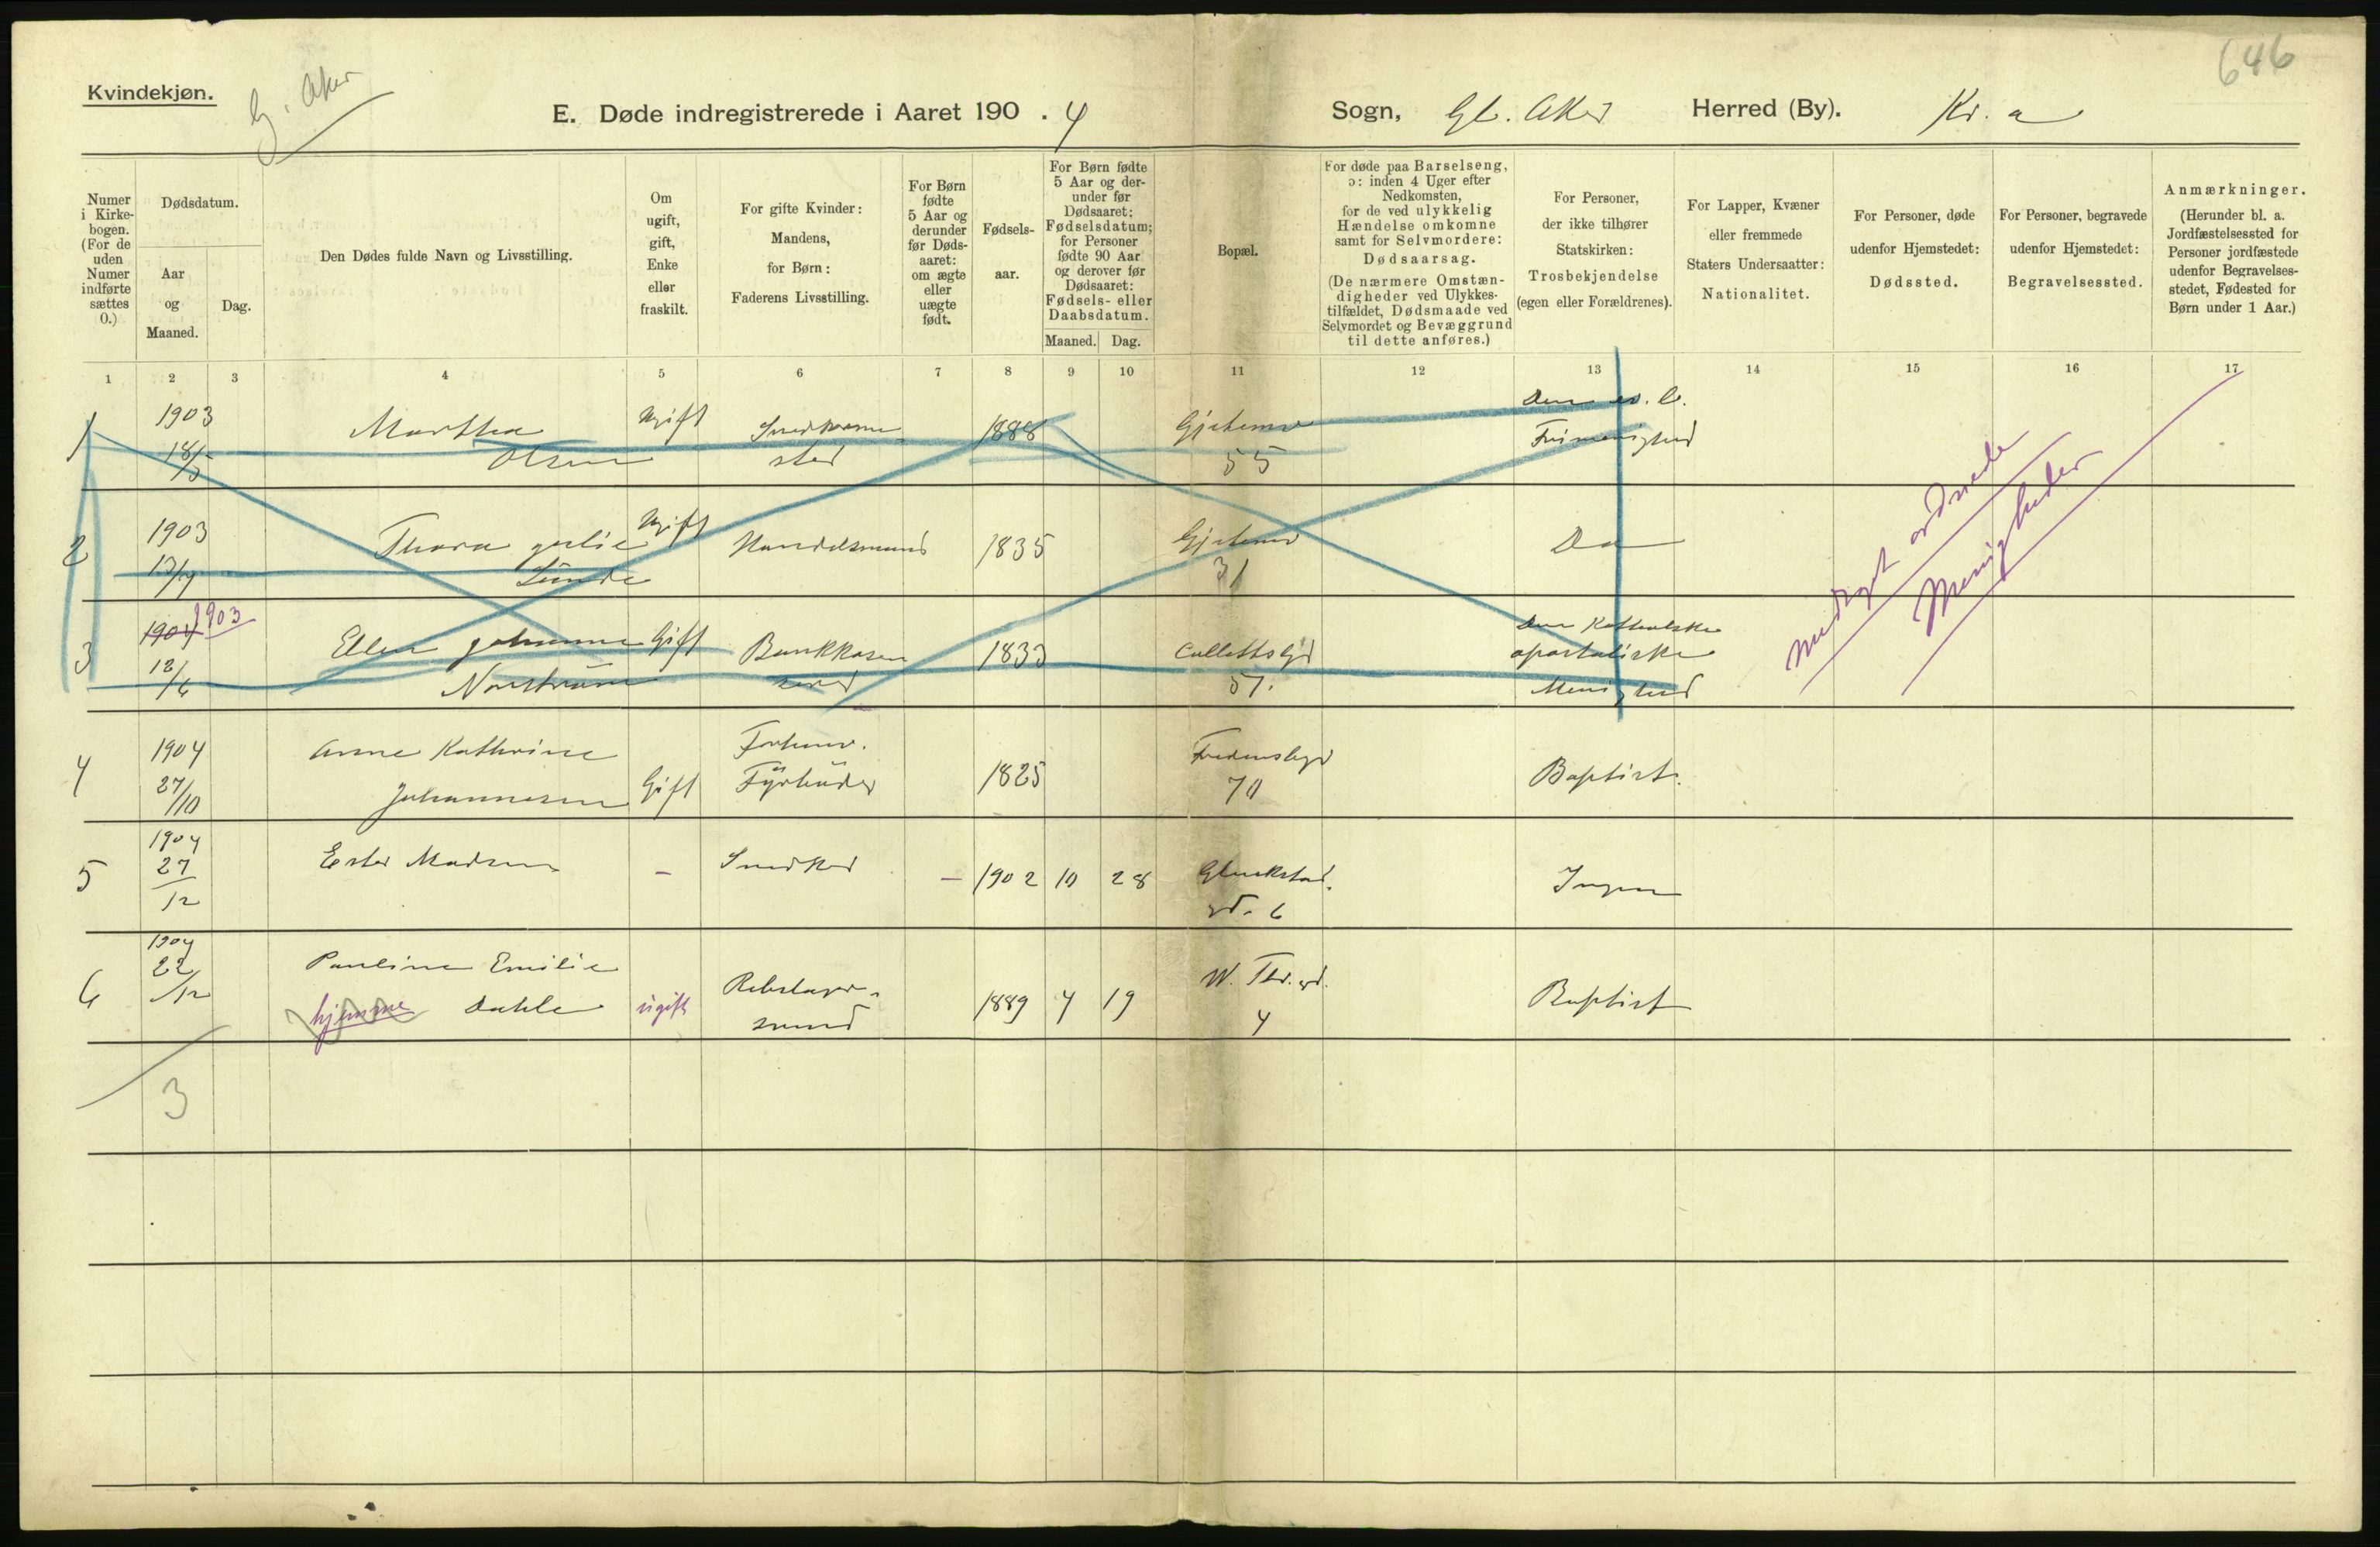 646
Kvindekjøn.
G. Aker
E. Døde indregistrerede i Aaret 190 . 4 Sogn, Gl. Aker Herred (By). Kr. a
Numer i Kirkebogen. (For de uden Numer indførte sættes 0.)
Dødsdatum.
Aar og Maaned.
Dag.
Den Dødes fulde Navn og Livsstilling.
Om ugift, gift, Enke eller fraskilt.
For gifte Kvinder: Mandens, for Børn: Faderens Livsstilling.
For Børn fødte 5 Aar og derunder før Dødsaaret: om ægte eller uægte født.
Fødselsaar.
For Børn fødte 5 Aar og derunder før Dødsaaret: Fødselsdatum; for Personer fødte 90 Aar og derover før Dødsaaret: Fødsels- eller Daabsdatum.
Maaned. Dag.
Bopæl.
For døde paa Barselseng, ɔ: inden 4 Uger efter Nedkomsten, for de ved ulykkelig Hændelse omkomne samt for Selvmordere: Dødsaarsag.
(De nærmere Omstændigheder ved Ulykkestilfældet, Dødsmaade ved Selvmordet og Bevæggrund til dette anføres.)
For Personer, der ikke tilhører Statskirken: Trosbekjendelse (egen eller Forældrenes).
For Lapper, Kvæner eller fremmede Staters Undersaatter: Nationalitet.
For Personer, døde udenfor Hjemstedet: Dødssted.
For Personer, begravede udenfor Hjemstedet: Begravelsessted.
Anmærkninger. (Herunder bl. a. Jordfæstelsessted for Personer jordfæstede udenfor Begravelsesstedet, Fødested for Børn under 1 Aar.)
1 2 3 4 5 6 7 8 9 10 11 12 13 14 15 16 17
1 1903 18/5 Martha Olsen Ugift 1888 55 Den ev. l. Frimenighed
2 1903 13/7 Thora Julie Lunde Ugift Handelsmand 1835 31 Do
3 1904 1903 12/6 Ellen Johanne Gift Bankkasserer 1833 Collettsgd 57. Den Katholske apostoliske Menighed
medtaget ordnede
Menigheder
4 1904 27/10 Anne Kathrine Johannesen Gift Forhenv. Fyrbøder 1825 Fredensbgd 70 Baptist.
5 1904 27/12 Ester Madsen - Snedker - 1902 10 28 Gluckstad. gd. 6 Ingen
6 1904 22/12 Pauline Emilie hjemme Dahle ugift Rebslagersvend 1889 4 19 W. Thr. gd. 4 Baptist
3